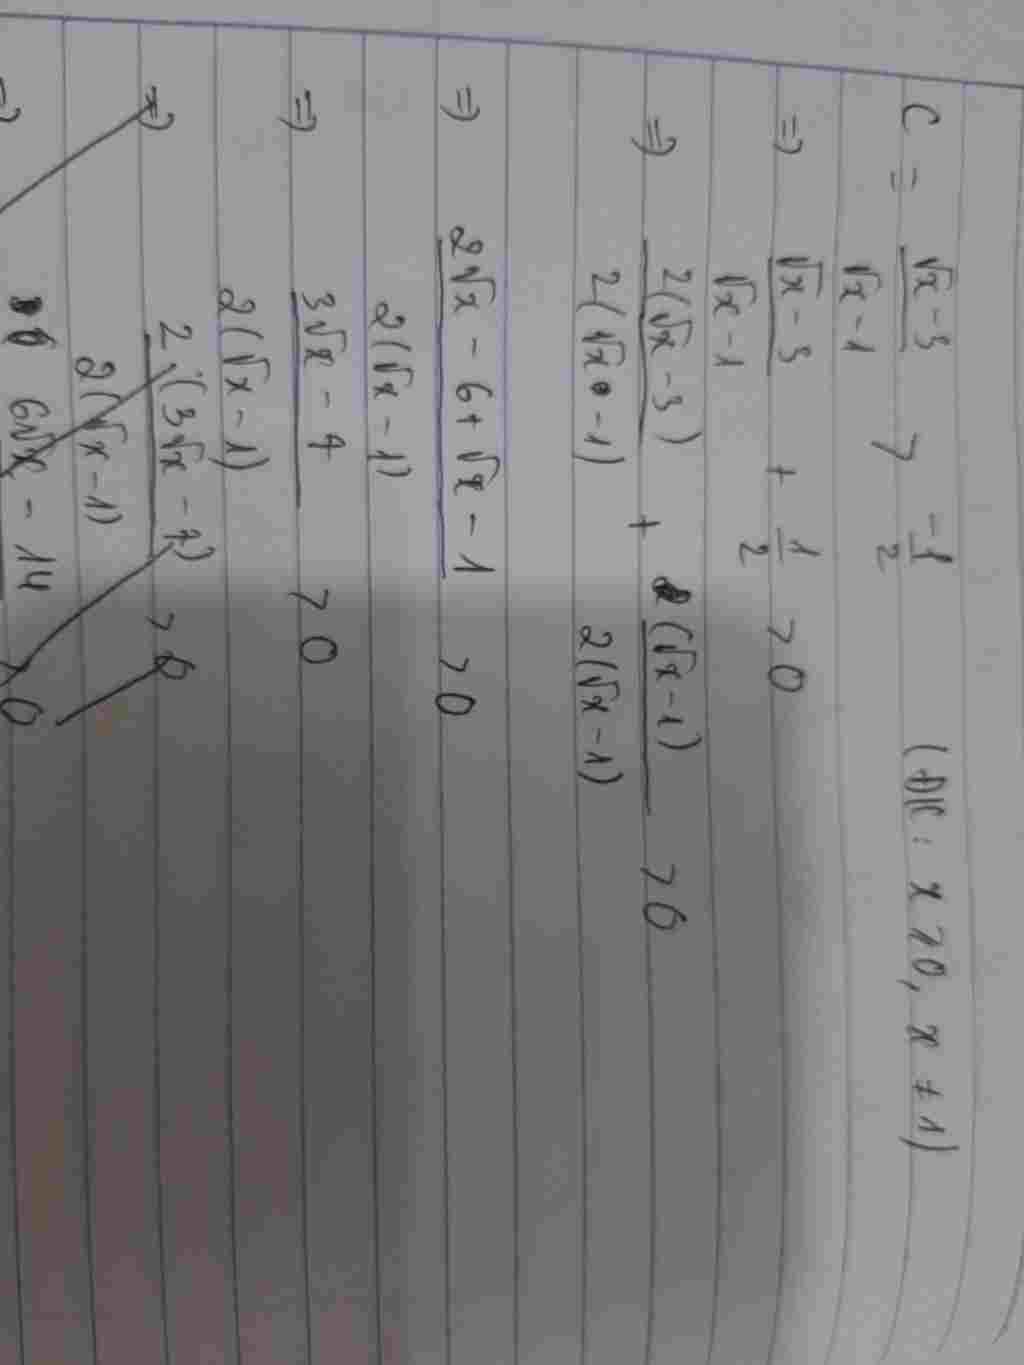 C = (√x - 3)/(√x - 1) > -1/2 (ĐK: x ≥ 0, x ≠ 1)
=> (√x - 3)/(√x - 1) + 1/2 > 0
=> 2(√x - 3)/2(√x - 1) + (√x - 1)/2(√x - 1) > 0
=> (2√x - 6 + √x - 1)/2(√x - 1) > 0
=> (3√x - 7)/2(√x - 1) > 0
=> 2·(3√x - 7)/2(√x - 1) > 0
=> 6√x - 14 > 0